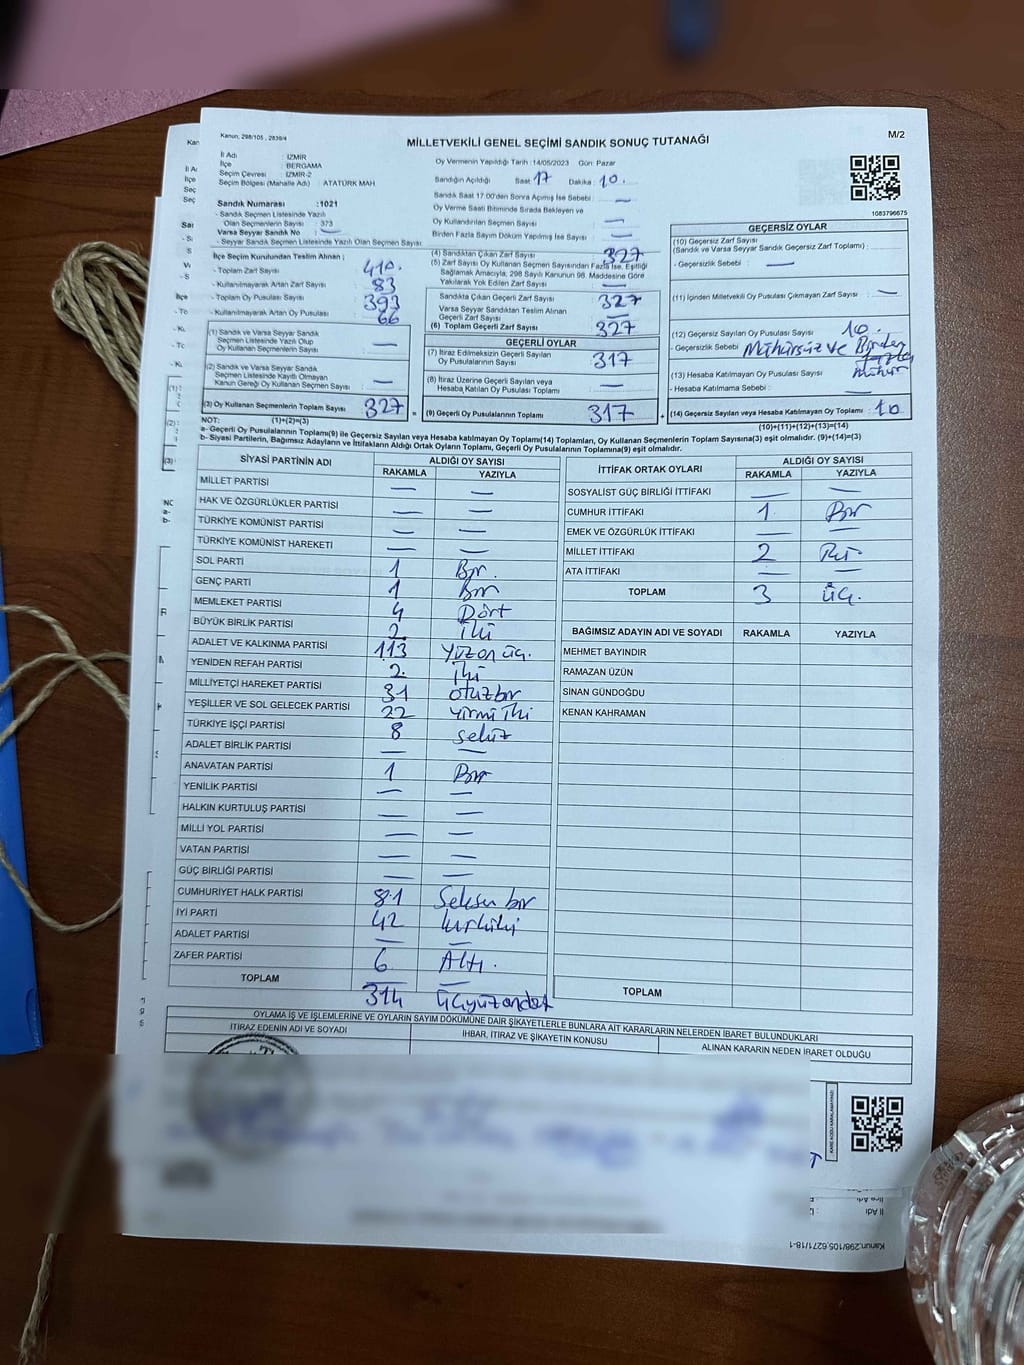 Kanun, 298/105 , 2839/4
M/2
MİLLETVEKİLİ GENEL SEÇİMİ SANDIK SONUÇ TUTANAĞI
İl Adı : İZMİR
İlçe : BERGAMA
Seçim Çevresi : İZMİR-2
Seçim Bölgesi (Mahalle Adı) : ATATÜRK MAH
Oy Vermenin Yapıldığı Tarih :14/05/2023 Gün: Pazar
Sandığın Açıldığı Saat 17 Dakika 10.
Sandık Saat 17:00'den Sonra Açılmış İse Sebebi : —
Oy Verme Saati Bitiminde Sırada Bekleyen ve
Oy Kullandırılan Seçmen Sayısı : —
Birden Fazla Sayım Döküm Yapılmış İse Sayısı : —
1083796675
Sandık Numarası :1021
- Sandık Seçmen Listesinde Yazılı
Olan Seçmenlerin Sayısı : 373
Varsa Seyyar Sandık No : —
- Seyyar Sandık Seçmen Listesinde Yazılı Olan Seçmen Sayısı:
İlçe Seçim Kurulundan Teslim Alınan ;
- Toplam Zarf Sayısı : 410.
- Kullanılmayarak Artan Zarf Sayısı : 83
- Toplam Oy Pusulası Sayısı : 393
- Kullanılmayarak Artan Oy Pusulası : 66
(1) Sandık ve Varsa Seyyar Sandık
Seçmen Listesinde Yazılı Olup
Oy Kullanan Seçmen Sayısı : —
(2) Sandık ve Varsa Seyyar Sandık
Seçmen Listesinde Kayıtlı Olmayan
Kanun Gereği Oy Kullanan Seçmen Sayısı : —
(3) Oy Kullanan Seçmenlerin Toplam Sayısı 327
(4) Sandıktan Çıkan Zarf Sayısı : 327
(5) Zarf Sayısı Oy Kullanan Seçmen Sayısından Fazla İse, Eşitliği
Sağlamak Amacıyla, 298 Sayılı Kanunun 98. Maddesine Göre
Yakılarak Yok Edilen Zarf Sayısı : —
Sandıkta Çıkan Geçerli Zarf Sayısı : 327
Varsa Seyyar Sandıktan Teslim Alınan
Geçerli Zarf Sayısı : —
(6) Toplam Geçerli Zarf Sayısı : 327
GEÇERLİ OYLAR
(7) İtiraz Edilmeksizin Geçerli Sayılan
Oy Pusulalarının Sayısı : 317
(8) İtiraz Üzerine Geçerli Sayılan veya
Hesaba Katılan Oy Pusulası Toplamı : —
(9) Geçerli Oy Pusulalarının Toplamı : 317
GEÇERSİZ OYLAR
(10) Geçersiz Zarf Sayısı
(Sandık ve Varsa Seyyar Sandık Geçersiz Zarf Toplamı) :
- Geçersizlik Sebebi : —
(11) İçinden Milletvekili Oy Pusulası Çıkmayan Zarf Sayısı : —
(12) Geçersiz Sayılan Oy Pusulası Sayısı : 10.
- Geçersizlik Sebebi : Mühürsüz ve Birden
fazla
mühür
(13) Hesaba Katılmayan Oy Pusulası Sayısı :
- Hesaba Katılmama Sebebi : —
(14) Geçersiz Sayılan veya Hesaba Katılmayan Oy Toplamı : 10
NOT: (1)+(2)=(3) (10)+(11)+(12)+(13)=(14)
a- Geçerli Oy Pusulalarının Toplamı(9) ile Geçersiz Sayılan veya Hesaba katılmayan Oy Toplamı(14) Toplamları, Oy Kullanan Seçmenlerin Toplam Sayısına(3) eşit olmalıdır. (9)+(14)=(3)
b- Siyasi Partilerin, Bağımsız Adayların ve İttifakların Aldığı Ortak Oyların Toplamı, Geçerli Oy Pusulalarının Toplamına(9) eşit olmalıdır.
SİYASİ PARTİNİN ADI ALDIĞI OY SAYISI
RAKAMLA YAZIYLA
MİLLET PARTİSİ — —
HAK VE ÖZGÜRLÜKLER PARTİSİ — —
TÜRKİYE KOMÜNİST PARTİSİ — —
TÜRKİYE KOMÜNİST HAREKETİ — —
SOL PARTİ 1 Bir.
GENÇ PARTİ 1 Bir
MEMLEKET PARTİSİ 4 Dört
BÜYÜK BİRLİK PARTİSİ 2 İki
ADALET VE KALKINMA PARTİSİ 113 Yüzonüç.
YENİDEN REFAH PARTİSİ 2. İki
MİLLİYETÇİ HAREKET PARTİSİ 31 otuzbir
YEŞİLLER VE SOL GELECEK PARTİSİ 22 yirmi İki
TÜRKİYE İŞÇİ PARTİSİ 8 sekiz
ADALET BİRLİK PARTİSİ — —
ANAVATAN PARTİSİ 1 Bir
YENİLİK PARTİSİ — —
HALKIN KURTULUŞ PARTİSİ — —
MİLLİ YOL PARTİSİ — —
VATAN PARTİSİ — —
GÜÇ BİRLİĞİ PARTİSİ — —
CUMHURİYET HALK PARTİSİ 81 Seksen bir
İYİ PARTİ 42 kırkiki
ADALET PARTİSİ — —
ZAFER PARTİSİ 6 Altı.
TOPLAM 314 üçyüzondört
İTTİFAK ORTAK OYLARI ALDIĞI OY SAYISI
RAKAMLA YAZIYLA
SOSYALİST GÜÇ BİRLİĞİ İTTİFAKI — —
CUMHUR İTTİFAKI 1 Bir
EMEK VE ÖZGÜRLÜK İTTİFAKI — —
MİLLET İTTİFAKI 2 İki
ATA İTTİFAKI — —
TOPLAM 3 üç.
BAĞIMSIZ ADAYIN ADI VE SOYADI RAKAMLA YAZIYLA
MEHMET BAYINDIR
RAMAZAN ÜZÜN
SİNAN GÜNDOĞDU
KENAN KAHRAMAN
TOPLAM
OYLAMA İŞ VE İŞLEMLERİNE VE OYLARIN SAYIM DÖKÜMÜNE DAİR ŞİKAYETLERLE BUNLARA AİT KARARLARIN NELERDEN İBARET BULUNDUKLARI
İTİRAZ EDENİN ADI VE SOYADI İHBAR, İTİRAZ VE ŞİKAYETİN KONUSU ALINAN KARARIN NEDEN İBARET OLDUĞU
KARE KODU KARALAMAYINIZ!
İlçe Adı
İl Adı
Kanun.298/105,627/1/18-1